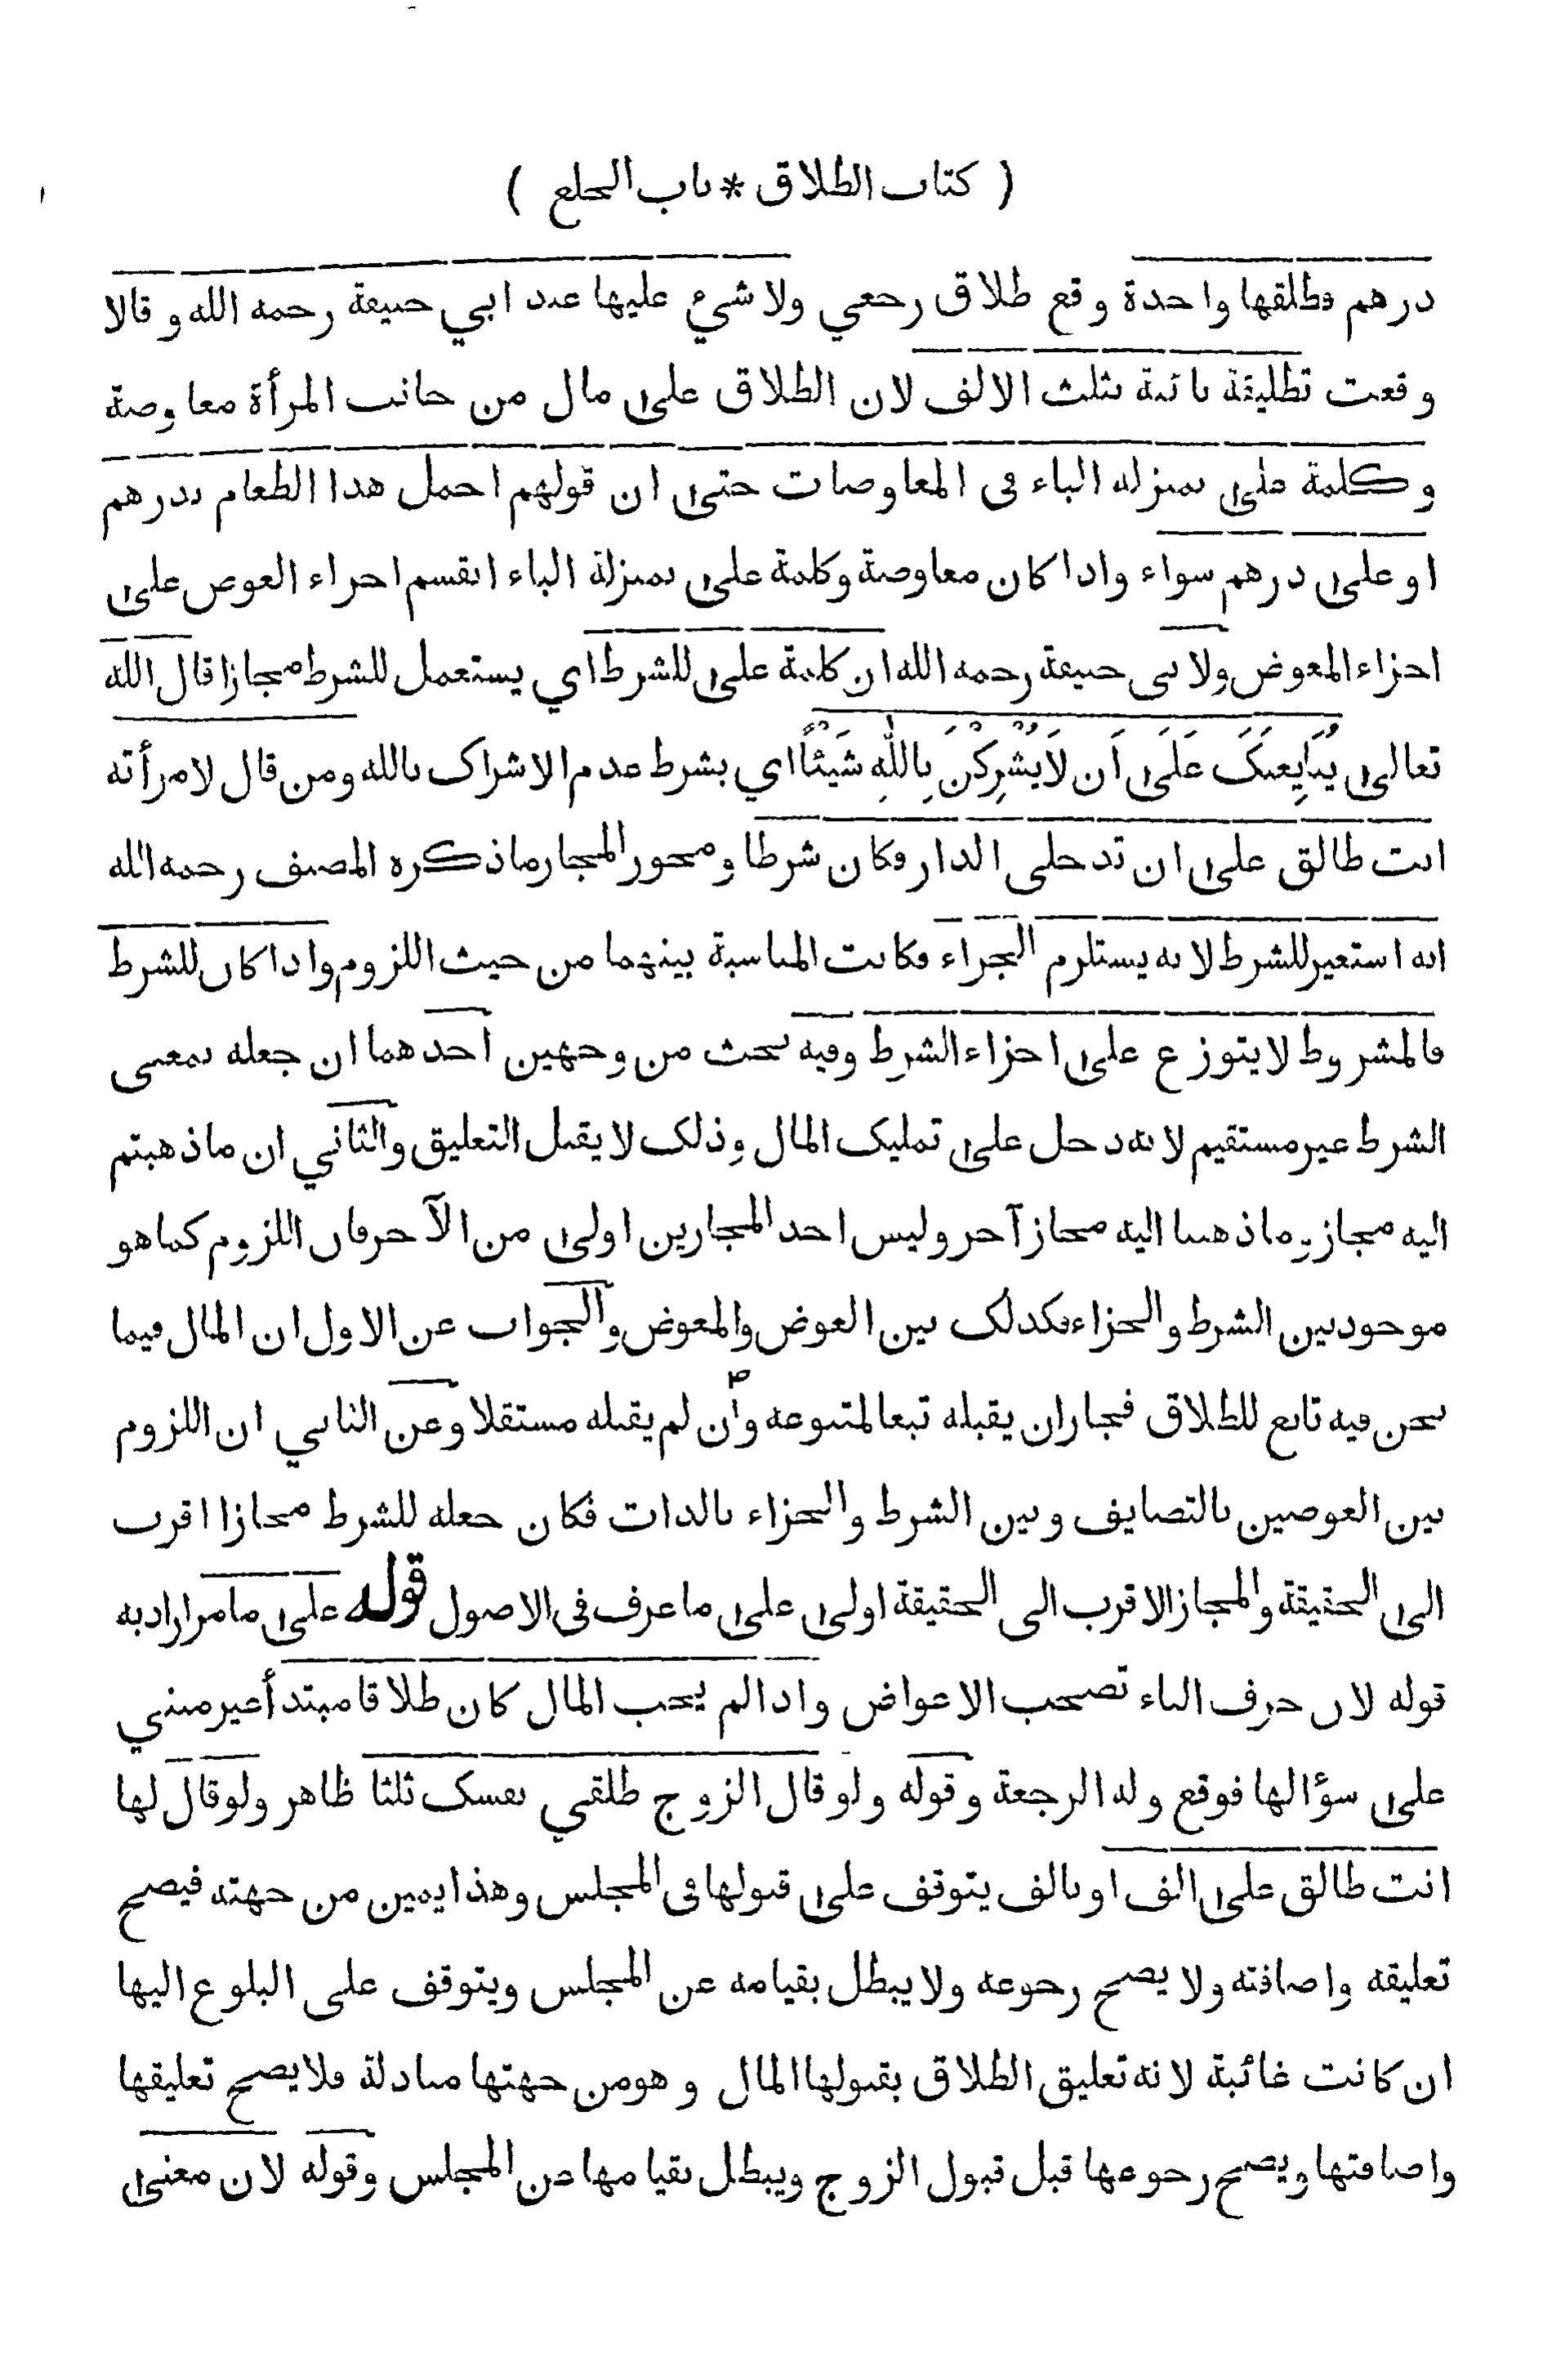 ( كتاب الطلاق * باب الخلع )
درهم فطلقها واحدة وقع طلاق رجعي ولا شيء عليها عند ابي حنيفة رحمه الله و قالا
وقعت تطليقة بائنة بثلث الالف لان الطلاق على مال من جانب المرأة معاوضة
وكلمة على بمنزلة الباء في المعاوضات حتى ان قولهم احمل هذا الطعام بدرهم
او على درهم سواء واذا كان معاوضة وكلمة على بمنزلة الباء انقسم اجزاء العوض على
اجزاء المعوض ولابي حنيفة رحمه الله ان كلمة على للشرط اي يستعمل للشرط مجازا قال الله
تعالى يُبَايِعنَكَ عَلَى أَن لَا يُشْرِكْنَ بِاللّٰهِ شَيْئًا اي بشرط عدم الاشراك بالله ومن قال لامرأته
انت طالق على ان تدخلي الدار فكان شرطا ومجوز المجاز ما ذكره المصنف رحمه الله
انه استعير للشرط لانه يستلزم الجزاء فكانت المناسبة بينهما من حيث اللزوم واذا كان للشرط
فالمشروط لا يتوزع على اجزاء الشرط وفيه بحث من وجهين احدهما ان جعله بمعنى
الشرط غير مستقيم لانه دخل على تمليك المال وذلك لا يقبل التعليق والثاني ان ما ذهبتم
اليه مجاز وما ذهبنا اليه مجاز آخر وليس احد المجازين اولى من الآخر فان اللزوم كما هو
موجود بين الشرط والجزاء فكذلك بين العوض والمعوض والجواب عن الاول ان المال فيما
نحن فيه تابع للطلاق فجاز ان يقبله تبعا لمتبوعه وان لم يقبله مستقلا وعن الثاني ان اللزوم
بين العوضين بالتضايف وبين الشرط والجزاء بالذات فكان جعله للشرط مجازا اقرب
الى الحقيقة والمجاز الاقرب الى الحقيقة اولى على ما عرف في الاصول قوله على ما مر اراد به
قوله لان حرف الباء تصحب الاعواض واذا لم يجب المال كان طلاقا مبتدأ غير مبني
على سؤالها فوقع وله الرجعة وقوله ولو قال الزوج طلقي نفسك ثلثا ظاهر ولو قال لها
انت طالق على الف او بالف يتوقف على قبولها في المجلس وهذا يمين من جهته فيصح
تعليقه واضافته ولا يصح رجوعه ولا يبطل بقيامه عن المجلس ويتوقف على البلوغ اليها
ان كانت غائبة لانه تعليق الطلاق بقبولها المال وهو من جهتها مبادلة فلا يصح تعليقها
واضافتها ويصح رجوعها قبل قبول الزوج ويبطل بقيامها عن المجلس وقوله لان معنى